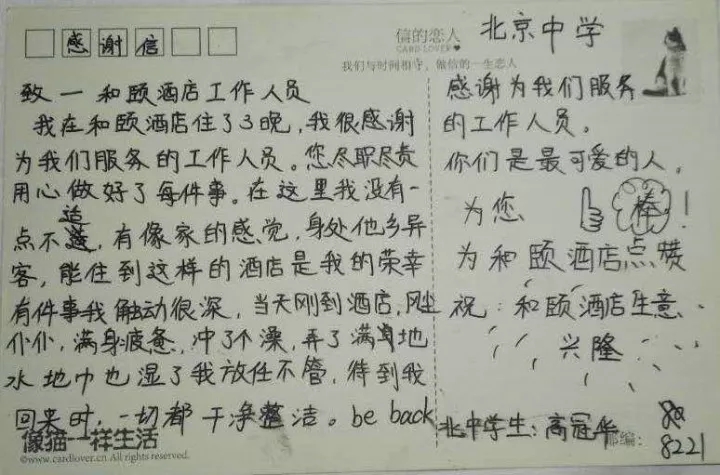 感谢信
信的恋人
CARD LOVER
我们与时间相守，做信的一生恋人
北京中学
致一和颐酒店工作人员
我在和颐酒店住了3晚，我很感谢
为我们服务的工作人员。您尽职尽责
用心做好了每件事。在这里我没有一
点不适，有像家的感觉，身处他乡异
客，能住到这样的酒店是我的荣幸
有件事我触动很深，当天刚到酒店，风尘
仆仆，满身疲惫，冲了个澡，弄了满地
水地巾也湿了我放任不管，待到我
回来时，一切都干净整洁。be back
像猫一样生活
©www.cardlover.cn All rights reserved.
感谢为我们服务
的工作人员。
你们是最可爱的人，
为您 棒！
为和颐酒店点赞
祝：和颐酒店生意
兴隆
北中学生：高冠华
邮编：
8221